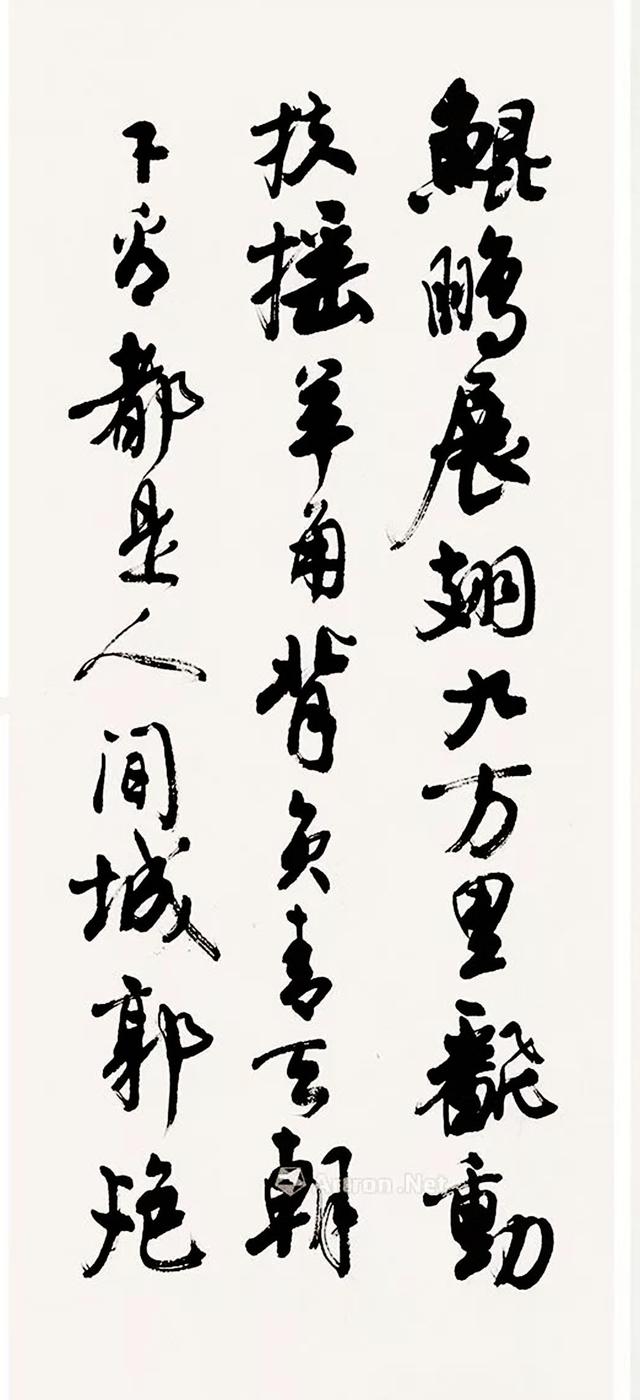 鯤鵬展翅九万里飜動
扶摇羊角背负青天朝
下看都是人间城郭炮
Artron.Net